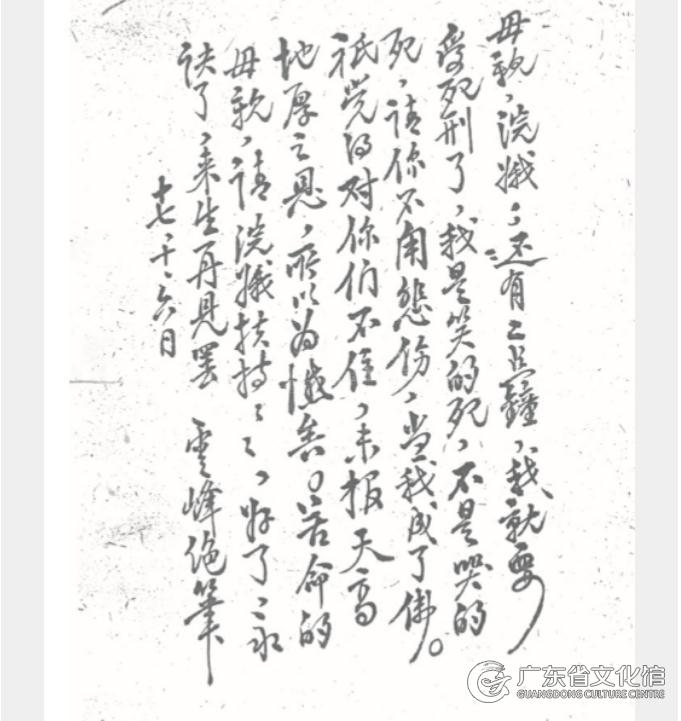 母親，浣娥，还有二点鐘，我就要
受死刑了，我是笑的死，不是哭的
死，請你不用悲伤，当我成了佛。
祇覚得对你们不住，未报天高
地厚之恩，所以为憾矣。苦命的
母親，請浣娥扶持〻〻，好了，永
诀了，来生再見罢 雲峰绝筆
十七、十、六日
广东省文化馆
GUANGDONG CULTURE CENTRE